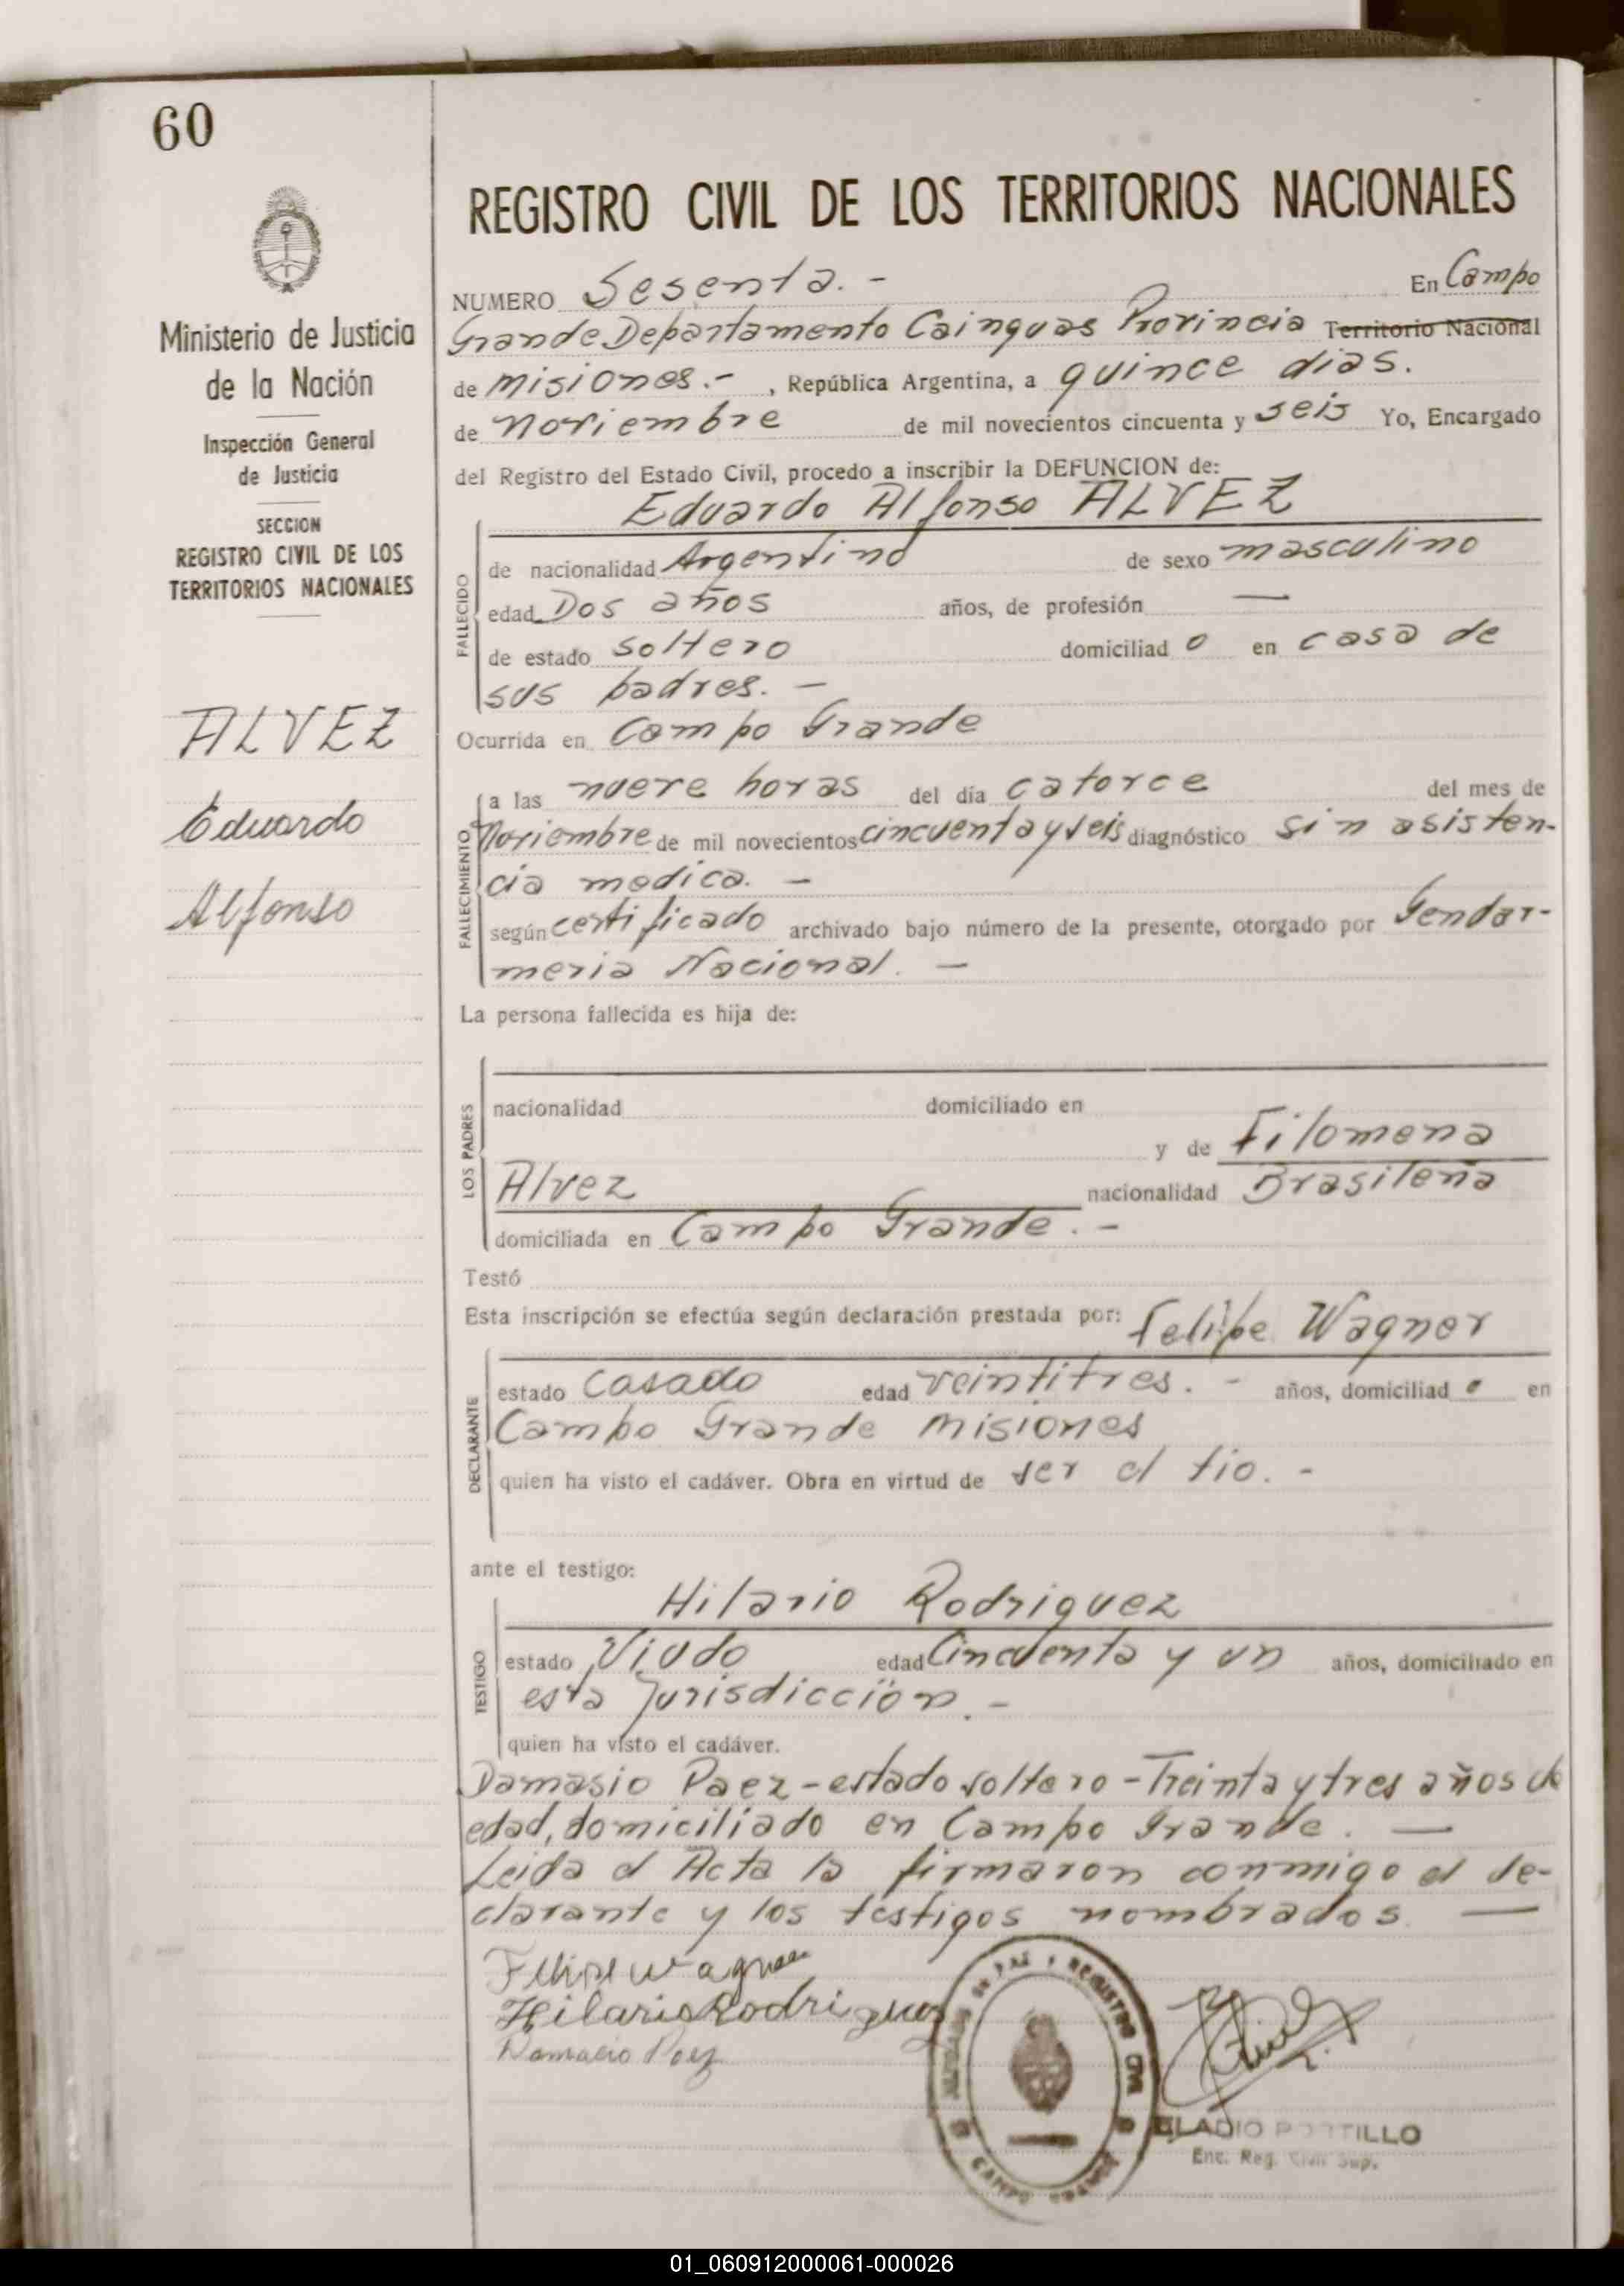 60
Ministerio de Justicia
de la Nación
Inspección General
de Justicia
SECCION
REGISTRO CIVIL DE LOS
TERRITORIOS NACIONALES
ALVEZ
Eduardo
Alfonso
REGISTRO CIVIL DE LOS TERRITORIOS NACIONALES
NUMERO Sesenta.- En Campo
Grande Departamento Cainguas Provincia Territorio Nacional
de Misiones.- , República Argentina, a quince dias.
de Noviembre de mil novecientos cincuenta y seis Yo, Encargado
del Registro del Estado Civil, procedo a inscribir la DEFUNCION de:
Eduardo Alfonso ALVEZ
FALLECIDO
de nacionalidad Argentino de sexo masculino
edad Dos años años, de profesión —
de estado soltero domiciliad o en casa de
sus padres. -
Ocurrida en Campo Grande
FALLECIMIENTO
a las nueve horas del día catorce del mes de
Noviembre de mil novecientos cincuenta y seis diagnóstico sin asisten-
cia medica. -
según certificado archivado bajo número de la presente, otorgado por Gendar-
meria Nacional. -
La persona fallecida es hija de:
LOS PADRES
nacionalidad domiciliado en
y de Filomena
Alvez nacionalidad Brasileña
domiciliada en Campo Grande. -
Testó
Esta inscripción se efectúa según declaración prestada por: Felipe Wagner
DECLARANTE
estado Casado edad veintitres. - años, domiciliad o en
Campo Grande Misiones
quien ha visto el cadáver. Obra en virtud de ser el tio. -
ante el testigo:
Hilario Rodriguez
TESTIGO
estado Viudo edad Cincuenta y un años, domiciliado en
esta Jurisdicción. -
quien ha visto el cadáver.
Damasio Paez - estado soltero - Treinta y tres años de
edad, domiciliado en Campo Grande. —
Leida el Acta la firmaron conmigo el de-
clarante y los testigos nombrados —
Felipe Wagner
Hilario Rodriguez
Damacio Paez
JUZGADO DE PAZ Y REGISTRO CIVIL
CAMPO GRANDE
ELADIO PORTILLO
Enc. Reg. Civil Sup.
01_060912000061-000026